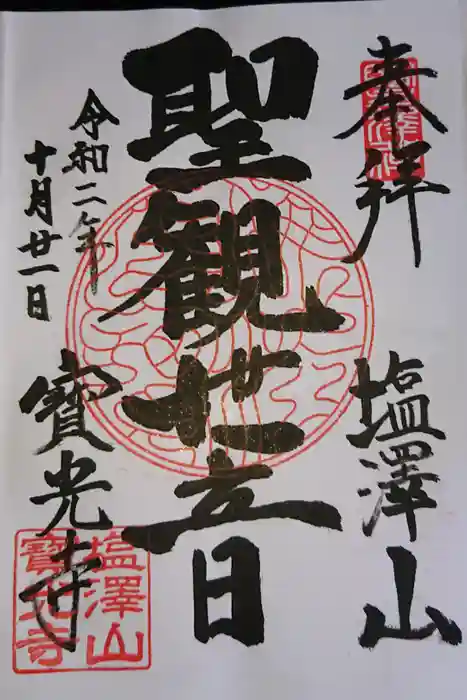 奉拝
塩澤山
聖観世音
令和二年
十月廿一日
寶光寺
塩澤山
寶光寺